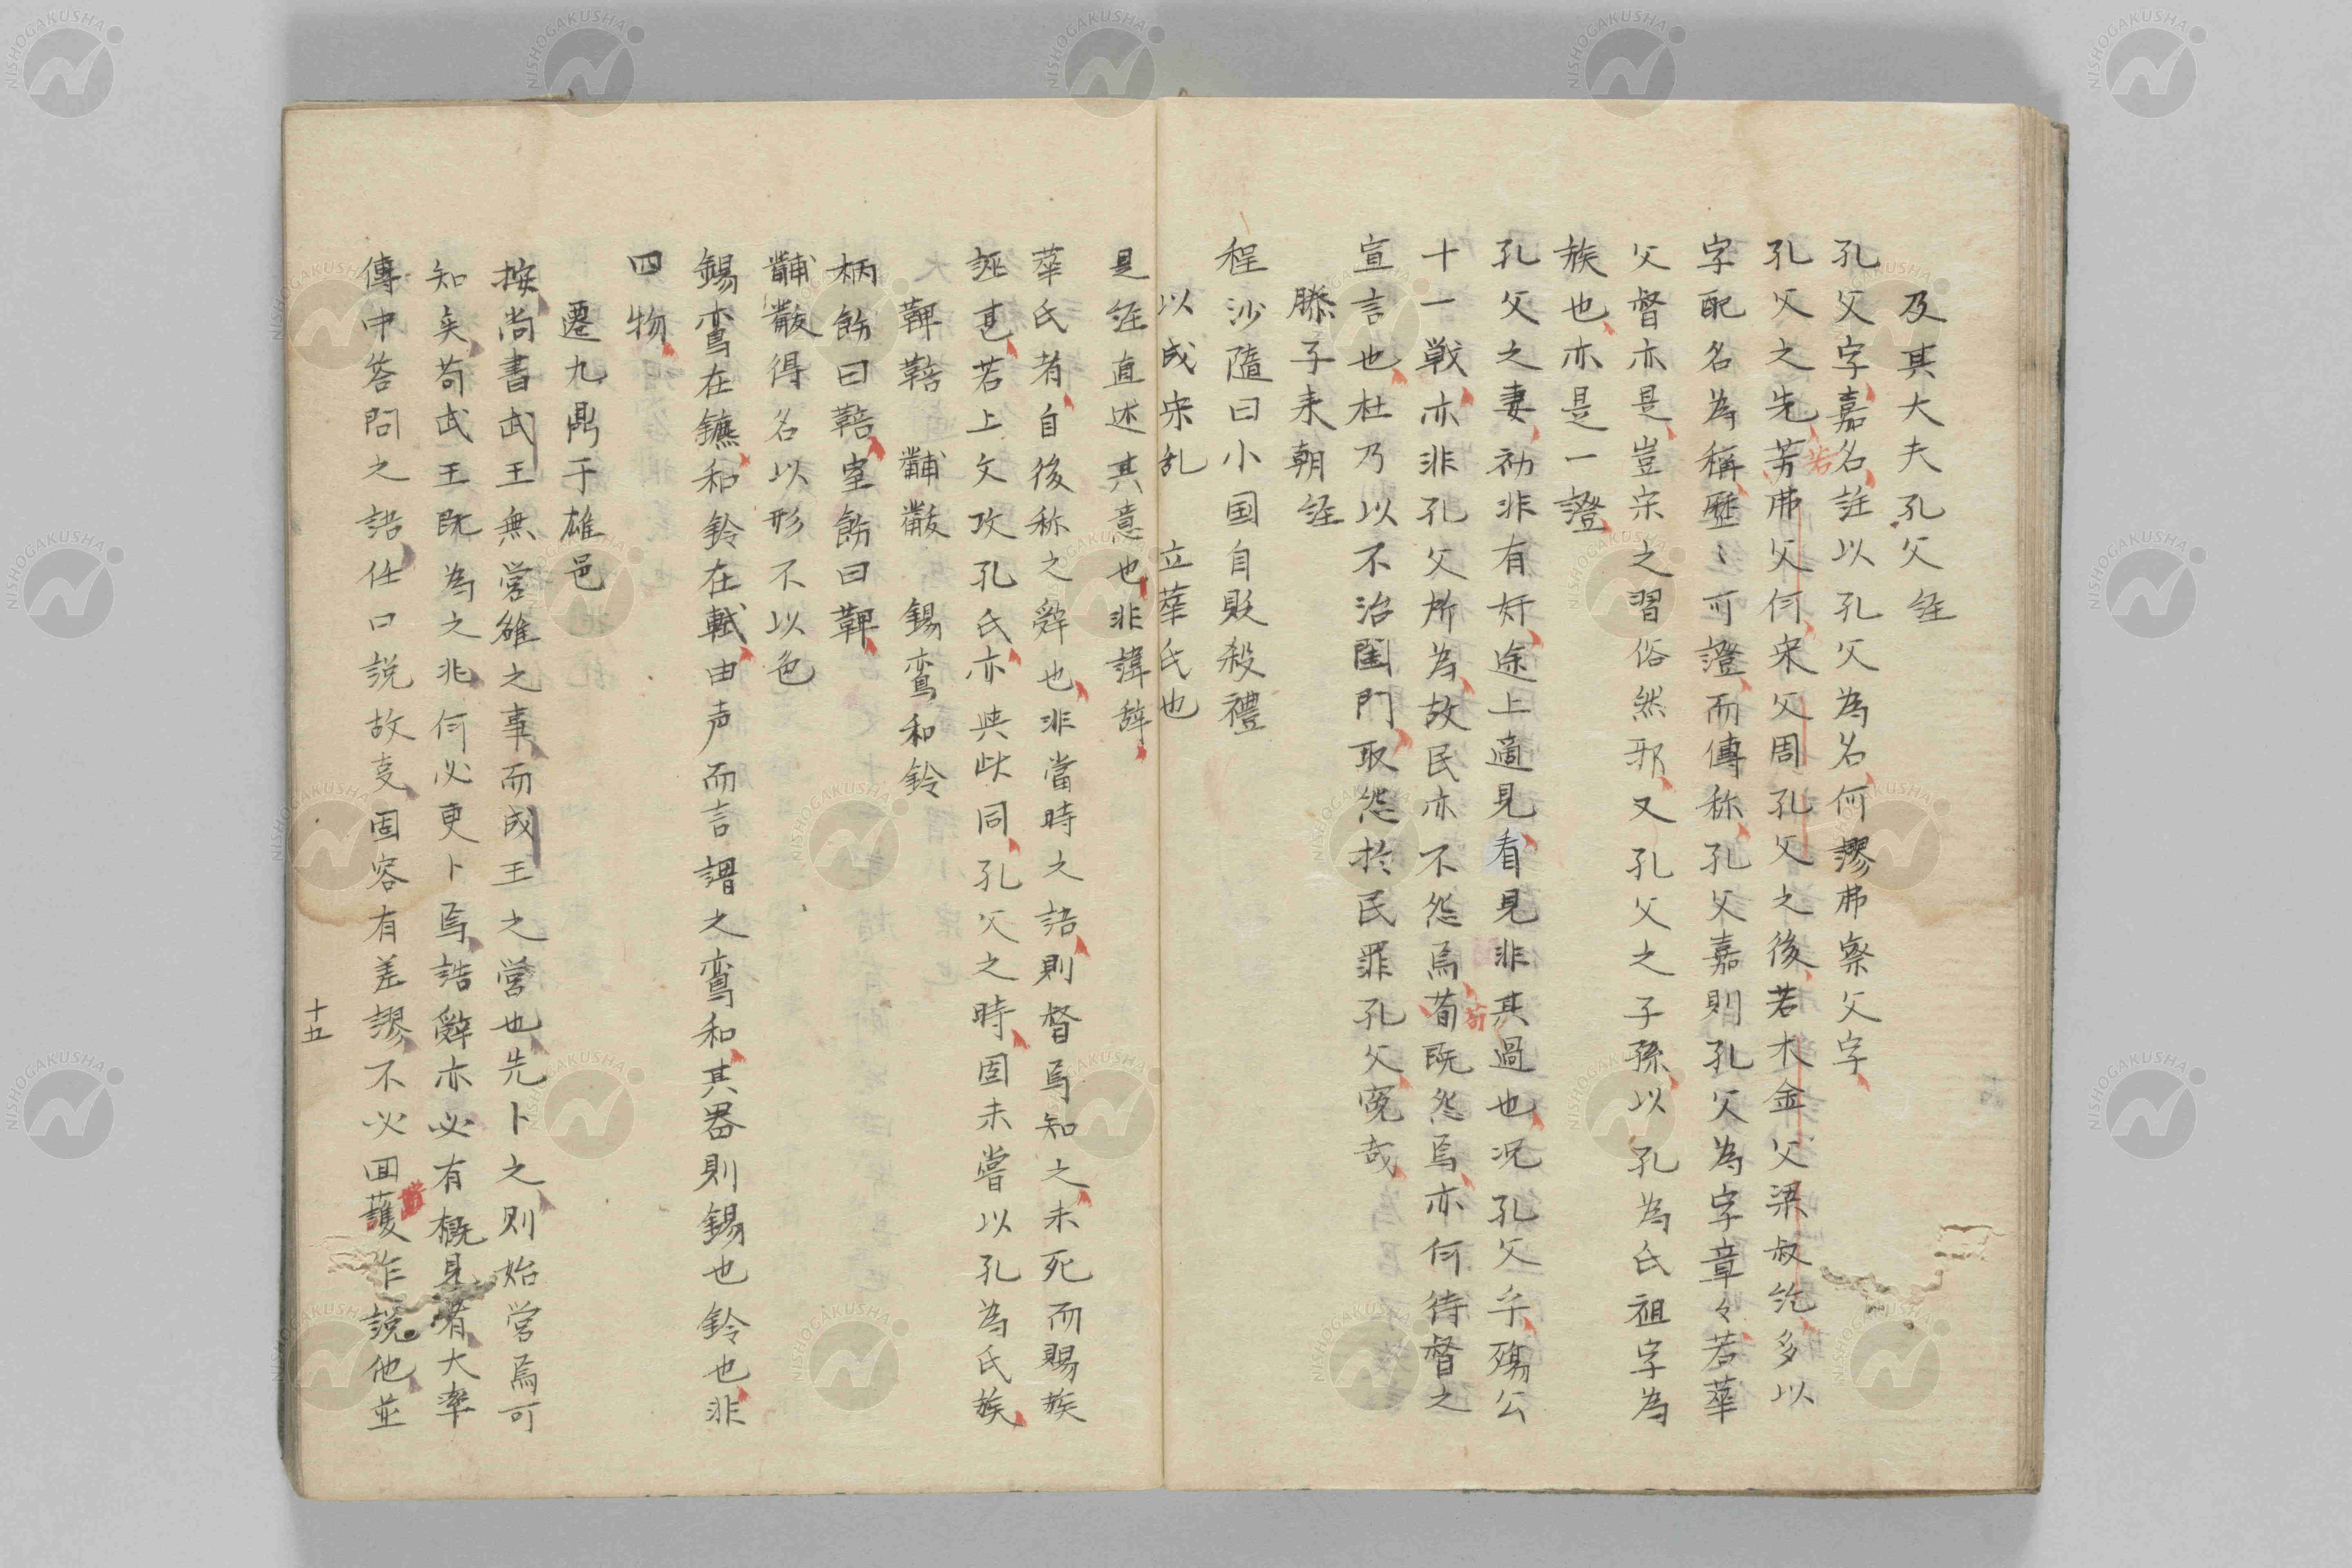 及其大夫孔父経
孔父字嘉名註以孔父為名何謬弗察父字
孔父之先芳弗父何宋父周孔父之後若木金父梁叔紇多以
若
字配名為稱歴〻可證而傳称孔父嘉則孔父為字章々若華
父督亦是豈宋之習俗然邪又孔父之子孫以孔為氏祖字為
族也亦是一證
孔父之妻初非有奸途上適見看見非其過也况孔父乎殤公
十一戦亦非孔父所為故民亦不怨焉荀既怨焉亦何待督之
苟
宣言也杜乃以不治閨門取怨於民罪孔父寃哉
滕子来朝経
程沙隨曰小国自貶殺禮
以成宋乱 立華氏也
是経直述其意也非諱辞
華氏者自後称之辤也非當時之語則督焉知之未死而賜族
誣甚若上文攻孔氏亦与此同孔父之時固未嘗以孔為氏族
鞞鞛 黼黻 錫鸞和鈴
柄飾曰鞛室飾曰鞞
黼黻得名以形不以色
錫鸞在鑣和鈴在軾由声而言謂之鸞和其器則錫也鈴也非
四物
遷九鼎于雒邑
按尚書武王無営雒之事而成王之営也先卜之則始営焉可
知矣苟武王既為之兆何必更卜焉誥辤亦必有概見者大率
傳中答問之語任口説故支固容有差謬不必回護作説他並
護
十五
NISHOGAKUSHA